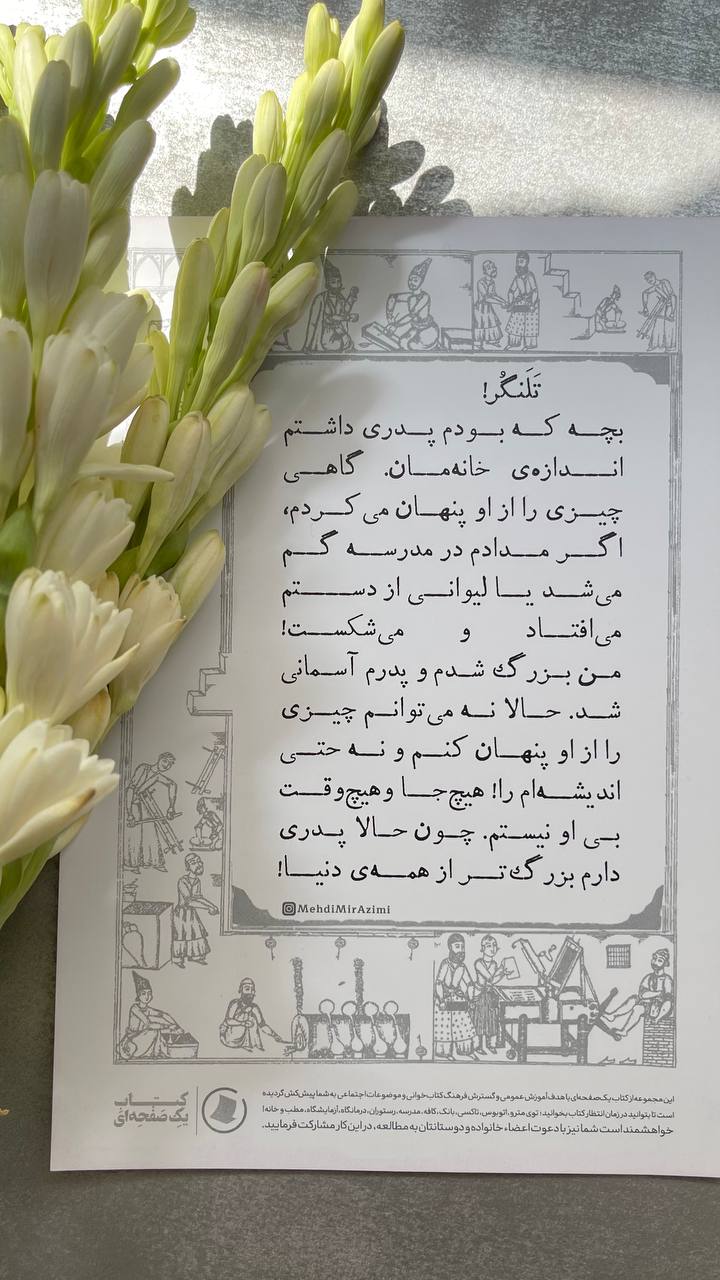 تَلَنگُر!
بچه که بودم پدری داشتم
اندازه‌ی خانه‌مان. گاهی
چیزی را از او پنهان می‌کردم،
اگر مدادم در مدرسه گم
می‌شد یا لیوانی از دستم
می‌افتاد و می‌شکست!
من بزرگ شدم و پدرم آسمانی
شد. حالا نه می‌توانم چیزی
را از او پنهان کنم و نه حتی
اندیشه‌ام را! هیچ‌جا و هیچ‌وقت
بی او نیستم. چون حالا پدری
دارم بزرگ‌تر از همه‌ی دنیا!
MehdiMirAzimi
این مجموعه از کتاب یک‌صفحه‌ای با هدف آموزش عمومی و گسترش فرهنگ کتاب‌خوانی و موضوعات اجتماعی به شما پیش‌کش گردیده
است تا بتوانید در زمان انتظار کتاب بخوانید؛ توی مترو، اتوبوس، تاکسی، بانک، کافه، مدرسه، رستوران، درمانگاه، آزمایشگاه، مطب و خانه!
خواهشمند است شما نیز با دعوت اعضاء خانواده و دوستانتان به مطالعه، در این کار مشارکت فرمایید.
کتاب
یک صَفحِه‌ای